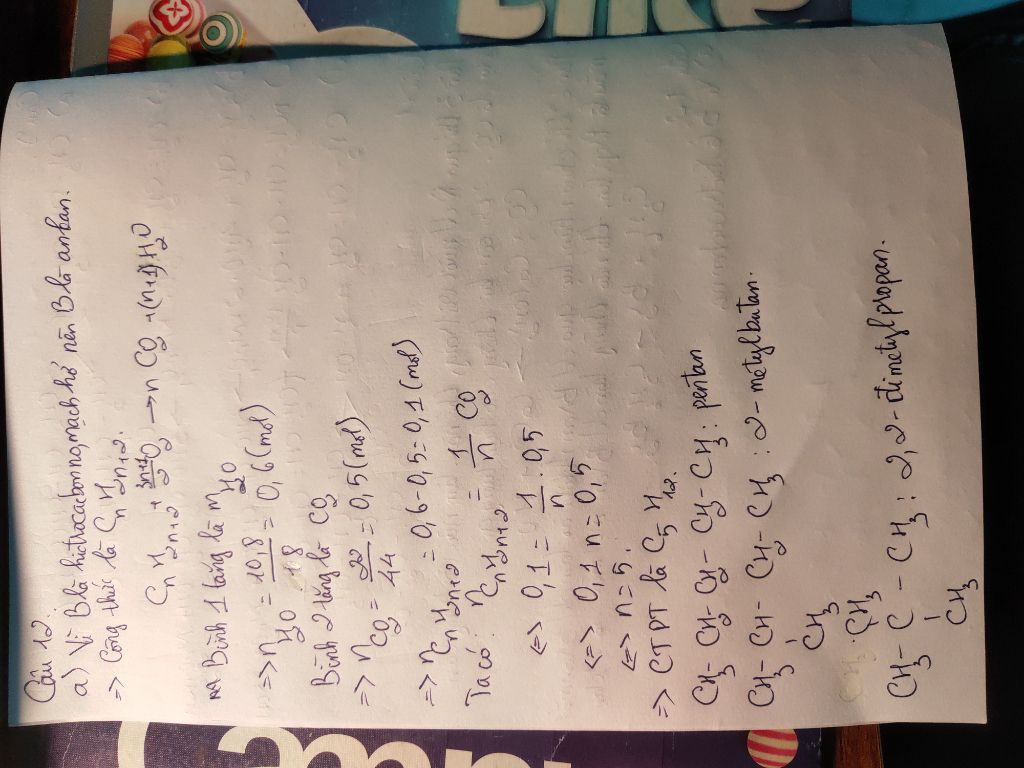 Câu 12:
a) Vì B là hiđrocacbon mạch hở nên B là ankan.
=> Công thức là CnH2n+2.
CnH2n+2 + 3n+1/2 O2 → n CO2 + (n+1) H2O
mà Bình 1 tăng là mH2O
=> nH2O = 10,8/18 = 0,6 (mol)
Bình 2 tăng là CO2
=> nCO2 = 22/44 = 0,5 (mol)
=> nCnH2n+2 = 0,6 - 0,5 = 0,1 (mol)
Ta có: nCnH2n+2 = 1/n CO2
<=> 0,1 = 1/n . 0,5
<=> 0,1 n = 0,5
<=> n = 5.
=> CTPT là C5H12.
CH3 - CH2 - CH2 - CH2 - CH3 : pentan
CH3 - CH - CH2 - CH3 : 2 - metylbutan.
CH3
CH3
CH3 - C - CH3 : 2,2 - đimetylpropan.
CH3